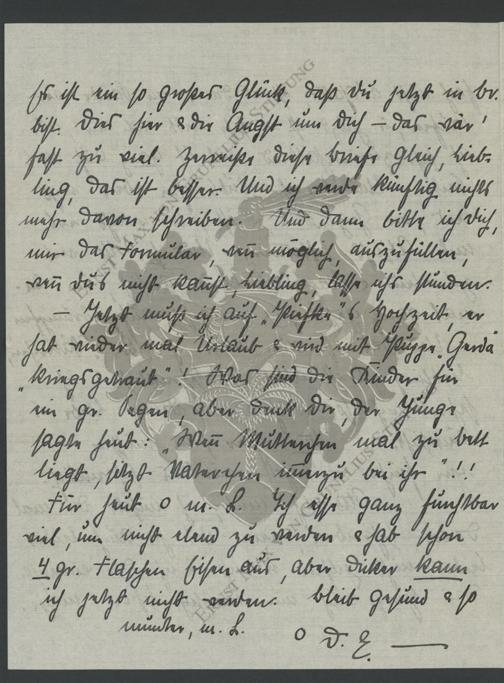 Es ist ein so großes Glück, daß du jetzt in Br.
bist. Dies hier & die Angst um dich – das wär'
fast zu viel. Zerreiße diese Briefe gleich, Lieb-
ling, das ist besser. Und ich werde künftig nichts
mehr davon schreiben. Und dann bitte ich dich,
mir das Formular, weñ möglich, auszufüllen,
weñ du's nicht kañst, Liebling, lasse ichs stunden.
– Jetzt muß ich auf „Piefke"s Hochzeit, er
hat wieder mal Urlaub & wird mit Puppe Gerda
„kriegsgetraut"! Was sind die Kinder für
ein gr. Segen, aber denk dir, der Junge
sagte heut: „Weñ Mutterchen mal zu bett
liegt sitzt Vaterchen im̃erzu bei ihr"!!
Für heut o m. L. Ich esse ganz furchtbar
viel, um nicht elend zu werden & hab schon
4 gr. Flaschen Eisen aus, aber dicker kann
ich jetzt nicht werden. bleib gesund & so
munter, m. L.
o D. E.
ERNST MAX VON GRUNELIUS-STIFTUNG
ERNST MAX VON GRUNELIUS-STIFTUNG